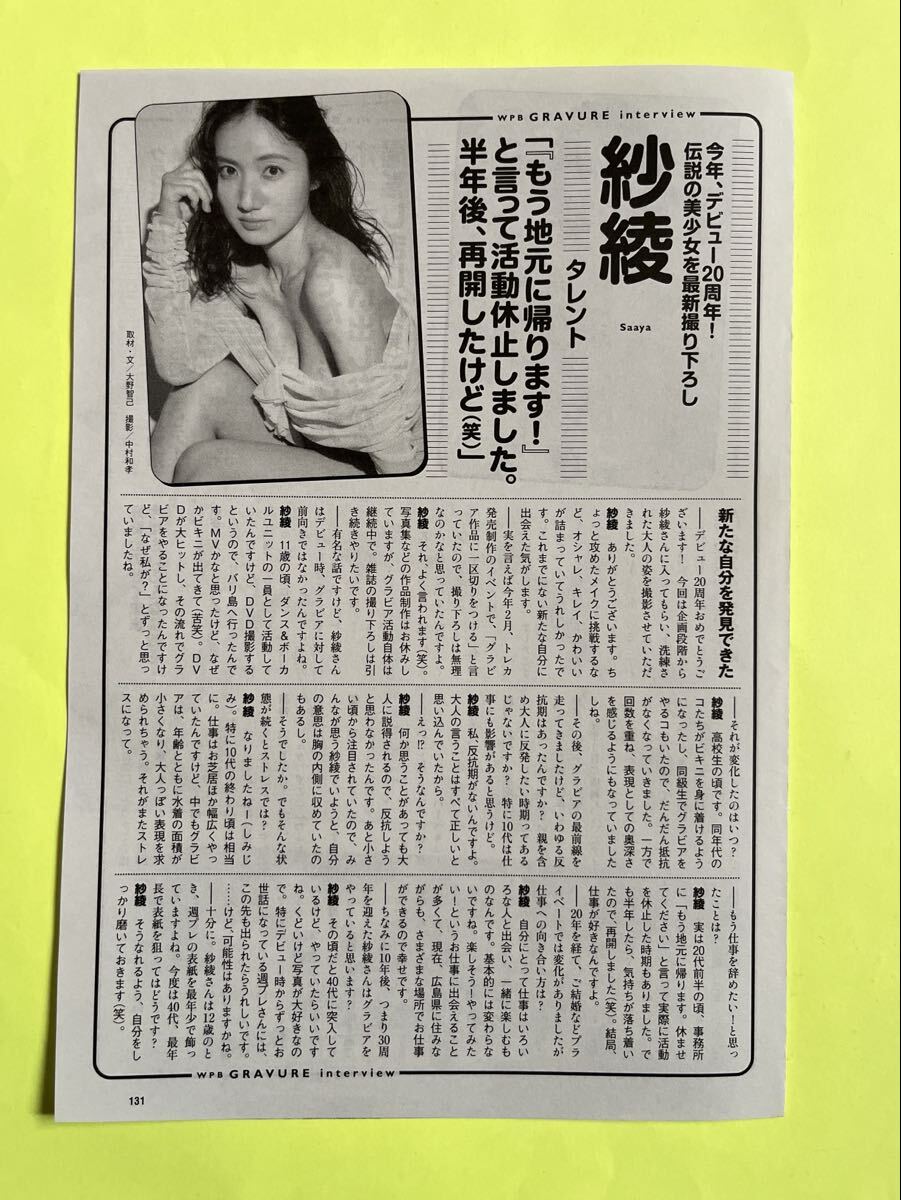 WPB GRAVURE interview
今年、デビュー20周年!
伝説の美少女を最新撮り下ろし
紗綾
Saaya
タレント
「『もう地元に帰ります!』
と言って活動休止しました。
半年後、再開したけど(笑)」
取材・文/大野智己 撮影/中村和孝
新たな自分を発見できた
――デビュー20周年おめでとうご
ざいます! 今回は企画段階から
紗綾さんに入ってもらい、洗練さ
れた大人の姿を撮影させていただ
きました。
紗綾 ありがとうございます。ち
ょっと攻めたメイクに挑戦するな
ど、オシャレ、キレイ、かわいい
が詰まっていてうれしかったで
す。これまでにない新たな自分に
出会えた気がします。
――実を言えば今年2月、トレカ
発売制作のイベントで、「グラビ
ア作品に一区切りをつける」と言
っていたので、撮り下ろしは無理
なのかなと思っていたんですよ。
紗綾 それ、よく言われます(笑)。
写真集などの作品制作はお休みし
ていますが、グラビア活動自体は
継続中で。雑誌の撮り下ろしは引
き続きやりたいです。
――有名な話ですけど、紗綾さん
はデビュー時、グラビアに対して
前向きではなかったんですよね。
紗綾 11歳の頃、ダンス&ボーカ
ルユニットの一員として活動して
いたんですけど、DVD撮影する
というので、バリ島へ行ったんで
す。MVかなと思ったけど、なぜ
かビキニが出てきて(苦笑)。DV
Dが大ヒットし、その流れでグラ
ビアをやることになったんですけ
ど、「なぜ私が?」とずっと思っ
ていましたね。
――それが変化したのはいつ?
紗綾 高校生の頃です。同年代の
コたちがビキニを身に着けるよう
になったし、同級生でグラビアを
やるコもいたので、だんだん抵抗
がなくなっていきました。一方で
回数を重ね、表現としての奥深さ
を感じるようにもなっていました
しね。
――その後、グラビアの最前線を
走ってきましたけど、いわゆる反
抗期はあったんですか? 親を含
め大人に反発したい時期ってある
じゃないですか? 特に10代は仕
事にも影響があると思うけど。
紗綾 私、反抗期がないんですよ。
大人の言うことはすべて正しいと
思い込んでいたから。
――えっ!? そうなんですか?
紗綾 何か思うことがあっても大
人に説得されるので、反抗しよう
と思わなかったんです。あと小さ
い頃から注目されていたので、み
んなが思う紗綾でいようと、自分
の意思は胸の内側に収めていたの
もあるし。
――そうでしたか。でもそんな状
態が続くとストレスでは?
紗綾 なりましたねー(しみじ
み)。特に10代の終わり頃は相当
に。仕事はお芝居ほか幅広くやっ
ていたんですけど、中でもグラビ
アは、年齢とともに水着の面積が
小さくなり、大人っぽい表現を求
められちゃう。それがまたストレ
スになって。
――もう仕事を辞めたい!と思っ
たことは?
紗綾 実は20代前半の頃、事務所
に「もう地元に帰ります。休ませ
てください」と言って実際に活動
を休止した時期もありました。で
も半年したら、気持ちが落ち着い
たので、再開しました(笑)。結局、
仕事が好きなんですよ。
――20年を経て、ご結婚などプラ
イベートでは変化がありましたが、
仕事への向き合い方は?
紗綾 自分にとって仕事はいろい
ろな人と出会い、一緒に楽しむも
のなんです。基本的には変わらな
いですね。楽しそう!やってみた
い!というお仕事に出会えること
が多くて、現在、広島県に住みな
がらも、さまざまな場所でお仕事
ができるので幸せです。
――ちなみに10年後、つまり30周
年を迎えた紗綾さんはグラビアを
やっていると思います?
紗綾 その頃だと40代に突入して
いるけど、やっていたらいいです
ね。くどいけど写真が大好きなの
で。特にデビュー時からずっとお
世話になっている週プレさんには、
この先も出られたらうれしいです。
……けど、可能性はありますかね。
――十分に。紗綾さんは12歳のと
き、週プレの表紙を最年少で飾っ
ていますよね。今度は40代、最年
長で表紙を狙ってはどうです?
紗綾 そうなれるよう、自分をし
っかり磨いておきます(笑)。
WPB GRAVURE interview
131